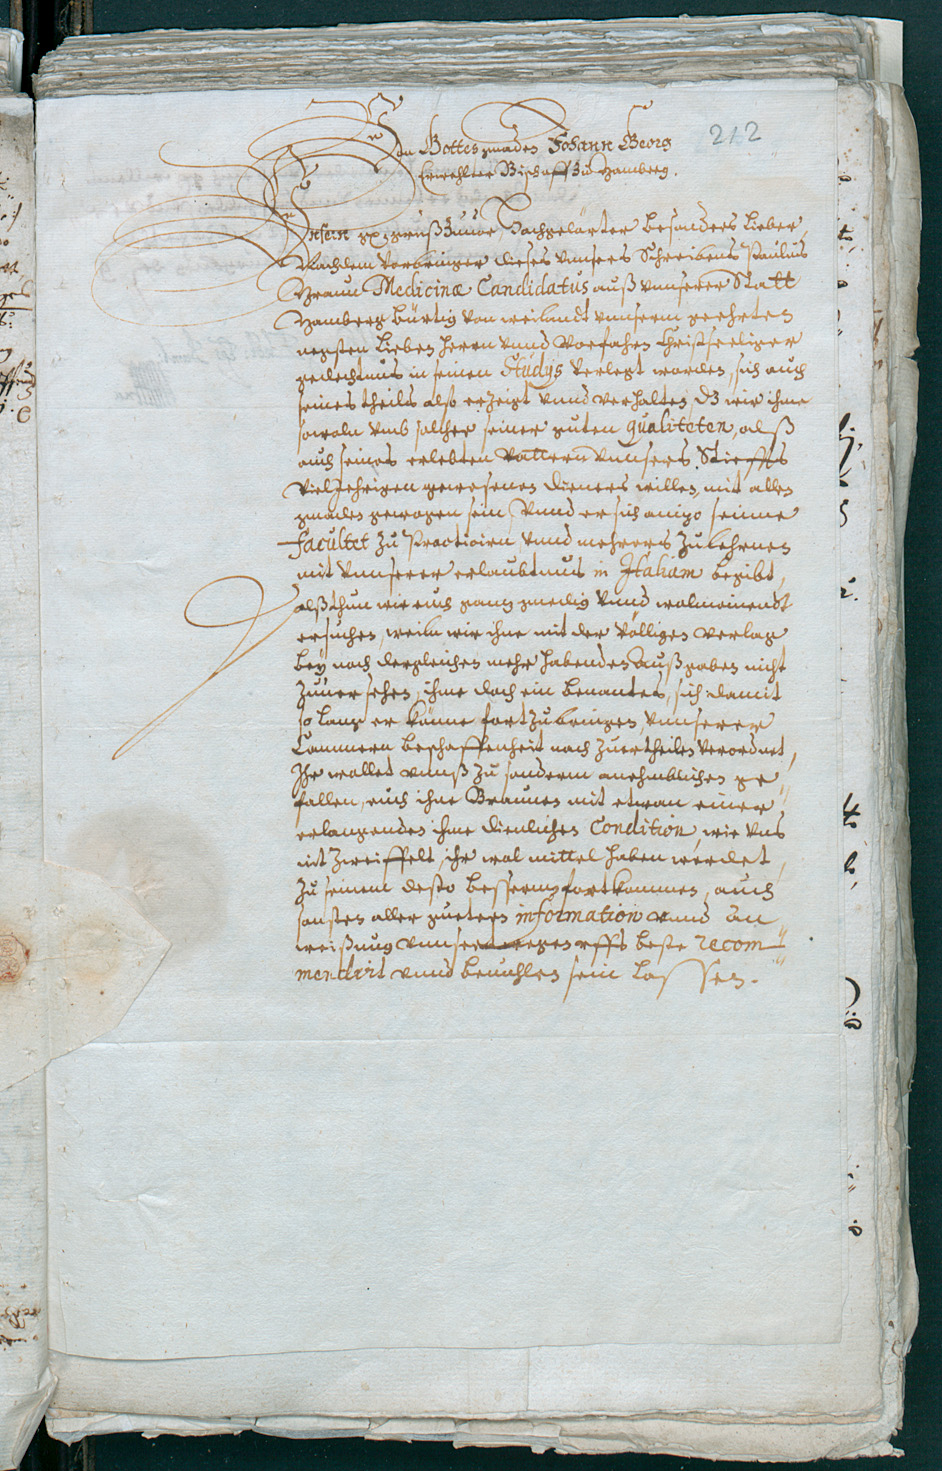 212
Von Gottes gnaden Johann Georg
Erwehlter Bischoff Zu Bamberg.
Unsern gruß Zuuor, Hochgelärter besonders lieber,
Nachdem vorbringer dieses vnnsers Schreibens Paulus
Braun Medicinæ Candidatus auß vnnserer Statt
Bamberg bürtig von weilandt vnnserm geehrten
negsten lieben herrn vnnd vorfahrn Christseeliger
gedechtnus in seinen Studys verlegt worden, sich auch
seines theils also erzeigt vnnd verhalten, dz wir ihme
sowoln vmb solcher seiner guten qualiteten, alß
auch seines erlebten Vattern vnnsers Stieffts
vieljehrigen gewesenen dieners willen, mit allen
gnaden gewogen sein, Vnnd er sich anizo seinne
facultet zu Practicirn, vnnd mehrers zulehrnen
mit vnnserer erlaubtnus in Italiam begibt,
alß thun wir euch ganz gnedig vnnd wolmeinendt
ersuchen, weiln wir ihne mit der völligen verlag
bey noch dergleichen mehr habenden außgaben nicht
zuuersehen, ihme doch ein benantes, sich damit
so lang er könne fortzubringen, vnnserer
Cammern beschaffenheit nach zuertheilen verordnet,
Ihr wollet vnnß zu sonderm anehmblichen ge=
fallen, euch ihne Braunen mit etwan einer
erlangenden ihme dienlichen Condition, wie vns
nit zweiffelt, ihr wol mittel haben werdet,
zu seinem desto bessern fortkommen, auch
sonsten aller guetern information vnnd an
weißung vnnsertwegen vffs beste recom=
mendirt vnnd beuohlen sein lassen.